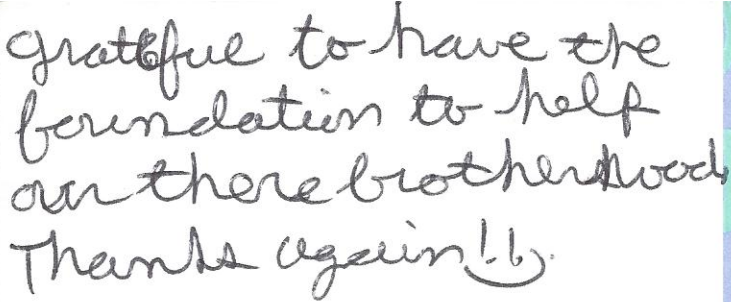 grateful to have the
foundation to help
our there brotherhood.
Thanks again!!